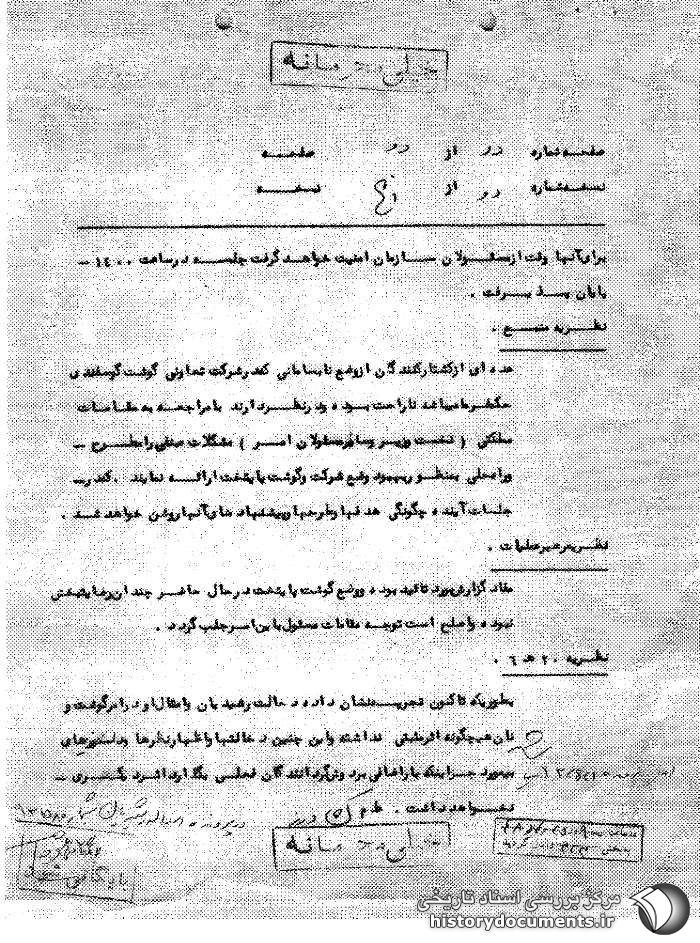 خیلی محرمانه
صفحه شماره دو از دو صفحه
نسخه شماره دو از نسخه
برای آنها وقت از مسئولان سازمان امنیت خواهد گرفت جلسه در ساعت ۱۴۰۰ ـ
پایان پذیرفت .
نظریه منبع .
عده ای از کشتارکنندگان از وضع نابسامانی که در شرکت تعاونی گوشت گوسفندی
حکمفرما میباشد ناراحت بوده و در نظر دارند با مراجعه به مقامات
مملکتی ( نخست وزیر و سایر مسئولان امر ) مشکلات صنفی را مطرح ـ
و راه حلی بمنظور بهبود وضع شرکت و گوشت پایتخت ارائه نمایند . که در ـ
جلسات آینده چگونگی هدفها و طرحها و پیشنهاد های آنها روشن خواهد شد .
نظریه رهبر عملیات .
مفاد گزارش مورد تائید بوده و وضع گوشت پایتخت در حال حاضر چندان رضایتبخش
نبوده و اصلح است توجه مقامات مسئول باین امر جلب گردد .
نظریه ۲۰ هـ ۶ .
بطوریکه تاکنون تجربه نشان داده دخالت رشیدیان و امثال او در امر گوشت و
نان هیچگونه اثر مثبتی نداشته و این چنین دخالتها و اظهار نظرها و دستورهای
بیمورد جز اینکه بنارضائی مردم و گردانندگان فعلی بگذارد اثر دیگری ـ
نخواهد داشت .
خیلی محرمانه
بایگانی شود
مرکز بررسی اسناد تاریخی
historydocuments.ir